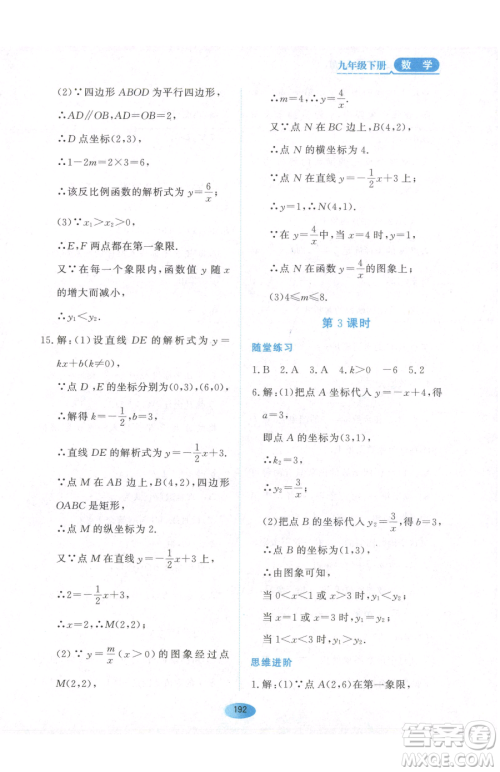 九年级下册 数学
(2)∵四边形 ABOD 为平行四边形,
∴AD∥OB,AD=OB,
∴D 点坐标(2,3),
∴1-2m=2×3=6,
∴该反比例函数的解析式为 y=6/x.
(3)∵x₁>x₂>0,
∴E,F 两点都在第一象限.
又∵在每一个象限内,函数值 y 随 x
的增大而减小,
∴y₁<y₂.
15.解:(1)设直线 DE 的解析式为 y=
kx+b(k≠0).
∵点 D,E 的坐标分别为(0,3),(6,0),
∴解得 k=-1/2,b=3,
∴直线 DE 的解析式为 y=-1/2x+3.
∵点 M 在 AB 边上,B(4,2),四边形
OABC 是矩形,
∴点 M 的纵坐标为 2.
又∵点 M 在直线 y=-1/2x+3 上,
∴2=-1/2x+3,
∴x=2,
∴点 M(2,2).
(2)∵y=m/x(x>0)的图象经过点
M(2,2),
∴m=4,∴y=4/x.
又∵点 N 在 BC 边上,B(4,2),
∴点 N 的横坐标为 4.
∵点 N 在直线 y=-1/2x+3 上,
∴y=1,
∴点 N(4,1).
∵在 y=4/x 中,当 x=4 时,y=1,
∴点 N 在函数 y=4/x 的图象上.
(3)4≤m≤8.
第 3 课时
随堂练习
1.B 2.A 3.A 4.k>0 -6 5.2
6.解:(1)把点 A 坐标代入 y=-x+4,得
a=3,
即点 A 的坐标为(3,1),
∴k=3,
∴y₂=3/x.
(2)把点 B 的坐标代入 y₂=3/x,得 b=3,
∴点 B 的坐标为(1,3).
由图象可知,
当 0<x<1 或 x>3 时,y₁<y₂;
当 x=1 或 x=3 时,y₁=y₂;
当 1<x<3 时,y₁>y₂.
思维进阶
1.解:(1)∵点 A,B 在第一象限,
192
答案圈
MXQE.COM